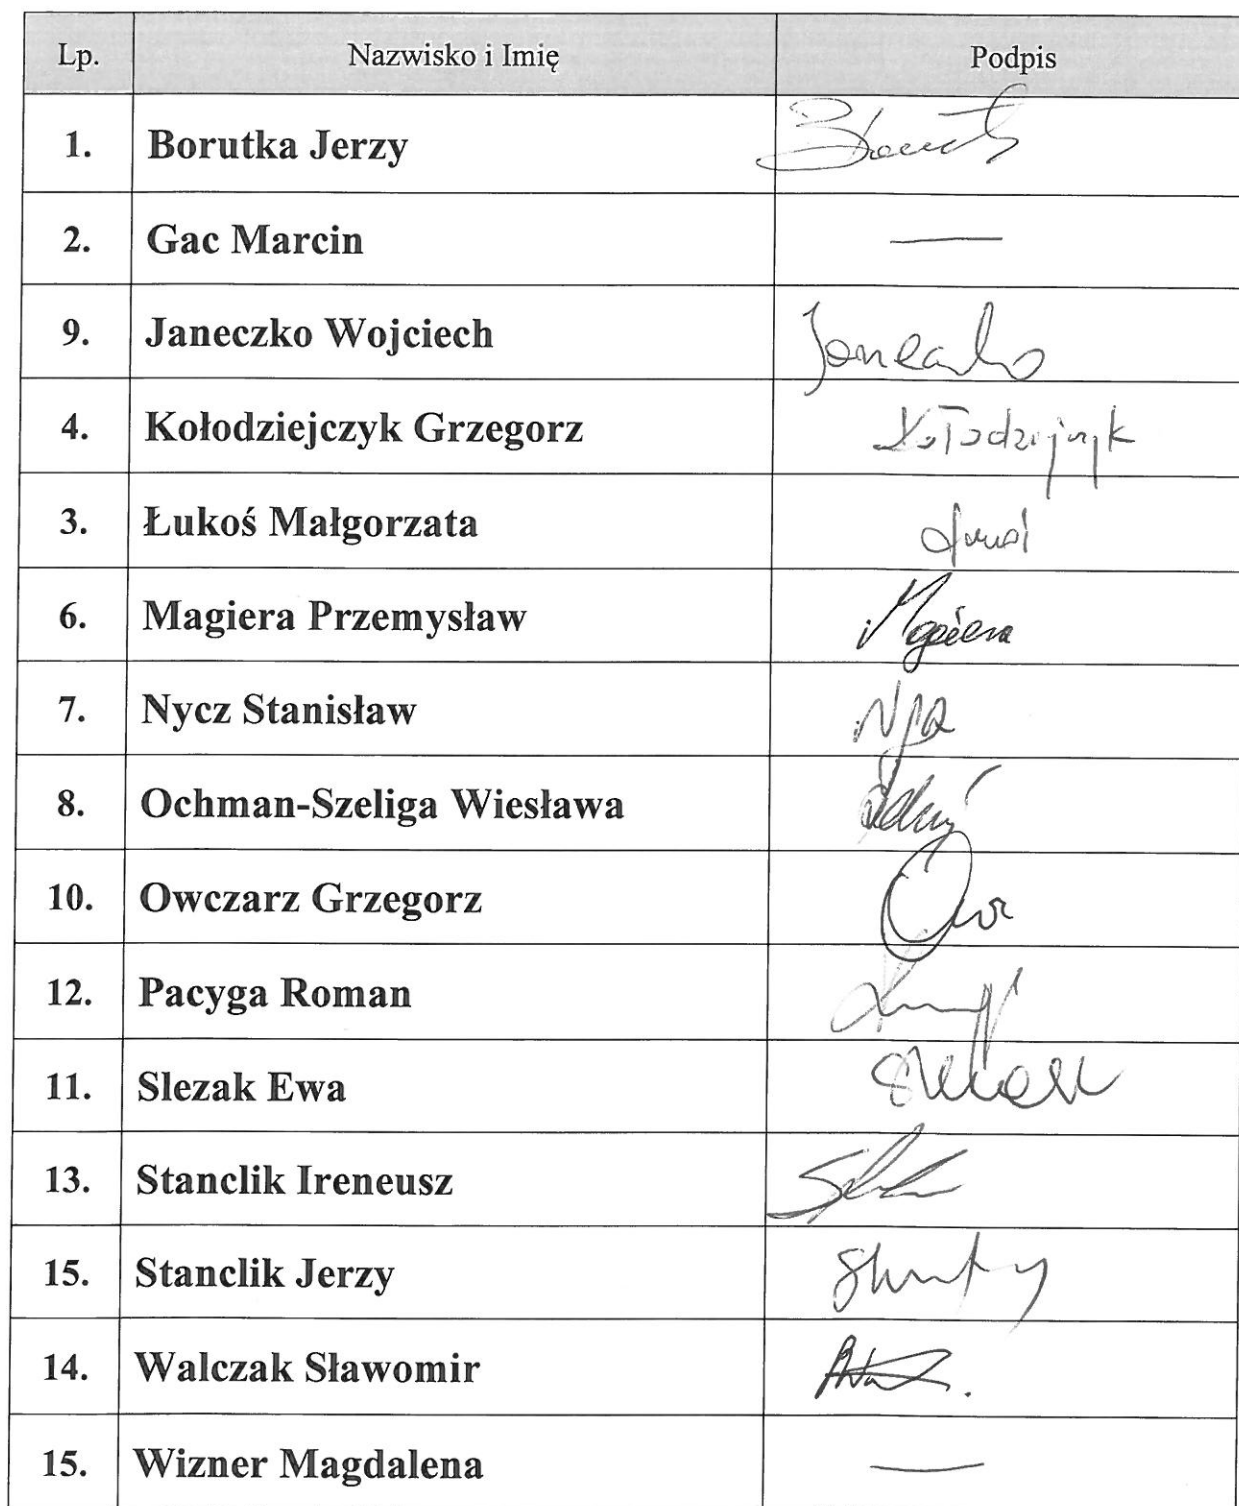 Lp. Nazwisko i Imię Podpis
1. Borutka Jerzy
2. Gac Marcin —
9. Janeczko Wojciech
4. Kołodziejczyk Grzegorz Kołodziejczyk
3. Łukoś Małgorzata
6. Magiera Przemysław Magiera
7. Nycz Stanisław
8. Ochman-Szeliga Wiesława
10. Owczarz Grzegorz
12. Pacyga Roman
11. Slezak Ewa
13. Stanclik Ireneusz
15. Stanclik Jerzy
14. Walczak Sławomir
15. Wizner Magdalena —